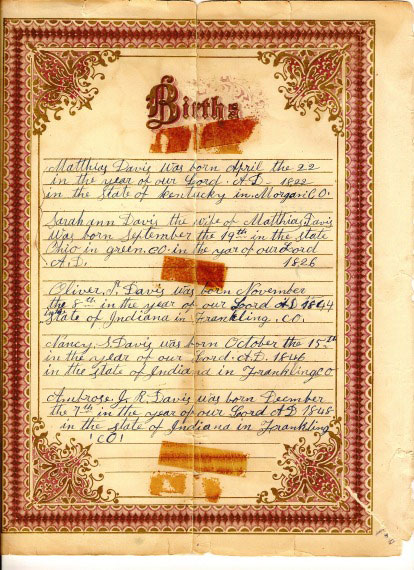 Births
Matthias Davis was born April the 22
in the year of our Lord A.D. 1822
in the state of Kentucky in Morgan CO.
Sarah ann Davis the wife of Matthias Davis
Was born September the 19th in the state
Ohio in green CO in the year of our Lord
A.D. 1826
Oliver P. Davis was born November
the 8th in the year of our Lord AD
state of Indiana in Frankling. CO.
Nancy S Davis was born October the 15th
in the year of our Lord. A.D. 1846
in the state of Indiana in Frankling CO
Ambrose J. R. Davis was born December
the 7th in the year of our Lord AD 1848
in the state of Indiana in Frankling
CO